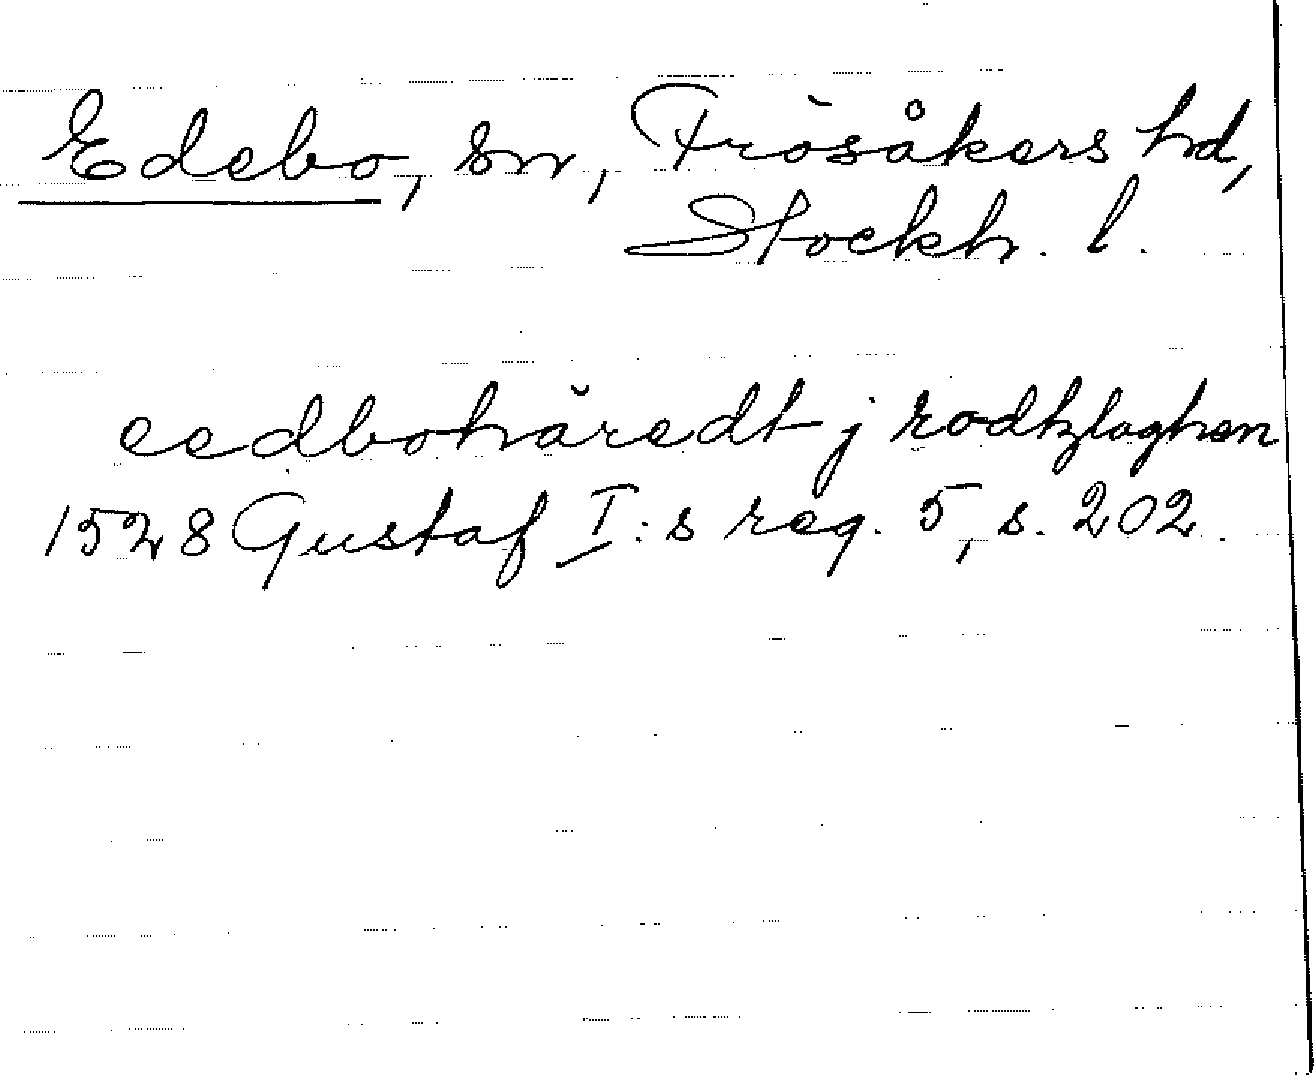 Edebo, sn, Frösåkers hd,
Stockh. l.
eedbohäredt j rodtzlaghen
1528 Gustaf I:s reg. 5, s. 202.